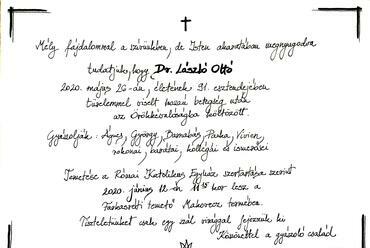 Mély fájdalommal a szívünkben, de Isten akaratában megnyugodva
tudatjuk, hogy Dr. László Ottó
2020. május 26-án, életének 91. esztendejében
türelemmel viselt hosszú betegség után
az Örökkévalóságba költözött.
Gyászolják: Ágnes, György, Barnabás, Panka, Vivien,
rokonai, barátai, kollégái és ismerősei
Temetése a Római Katolikus Egyház szertartása szerint
2020. június 12-én 11 15 kor lesz a
Farkasréti temető Makovecz termében.
Tiszteletünket csak egy szál virággal fejezzük ki
Köszönettel a gyászoló család